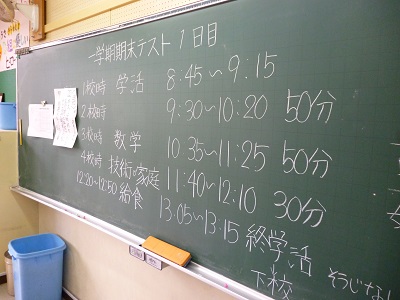 一学期期末テスト1日目
1校時 学活 8:45～9:15
2校時 9:30～10:20 50分
3校時 数学 10:35～11:25 50分
4校時 技術・家庭 11:40～12:10 30分
12:20～12:50 給食
13:05～13:15 終学活
下校 そうじなし